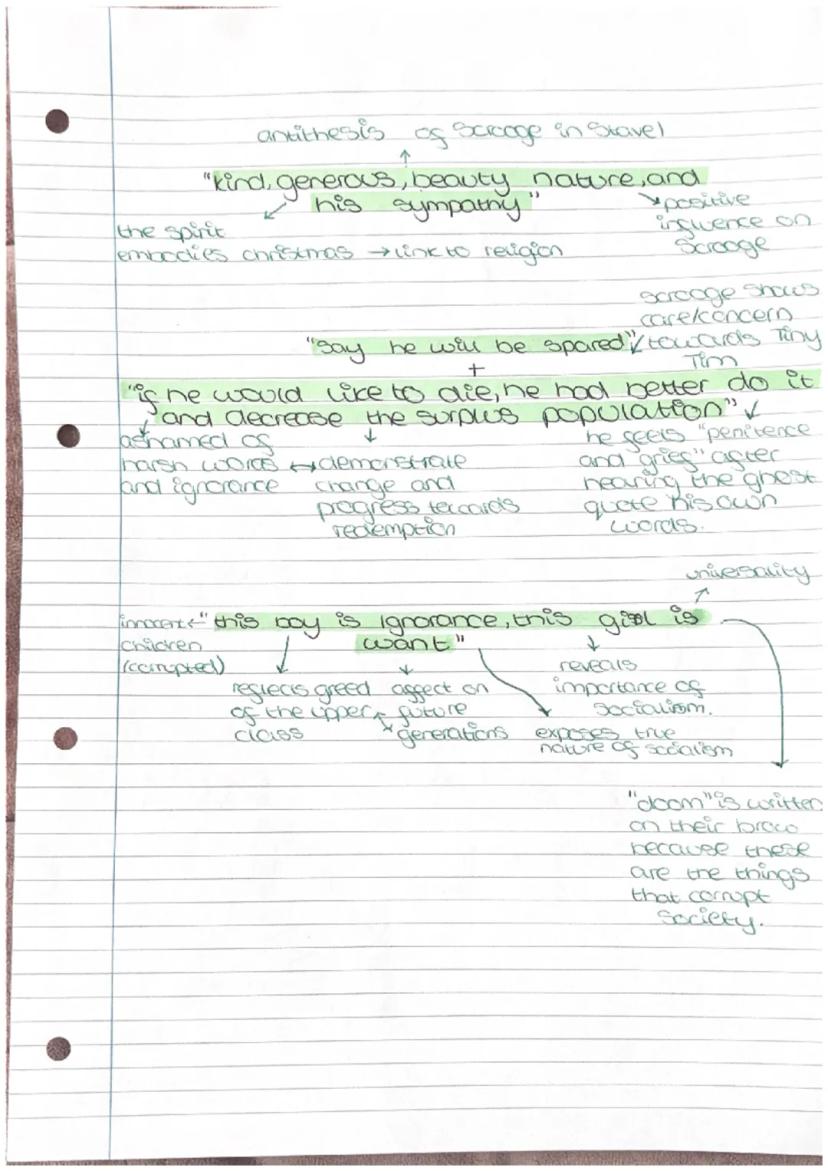 antithesis of Scrooge in Stave 1
"kind, generous, beauty nature, and
his sympathy"
the spirit
embodies christmas → link to religion
positive
influence on
Scrooge
scrooge shows
care/concern
towards Tiny
Tim
"say he will be spared"
+
"if he would like to die, he had better do it
and decrease the surplus population"
ashamed of
harsh words
and ignorance
demonstrate
change and
progress towards
redemption
he feels "penitence
and grief" after
hearing the ghost
quote his own
words.
universality
innocent
children
(corrupted)
"this boy is ignorance, this girl is
want"
reflects greed
of the upper
class
affect on
future
generations
reveals
importance of
socialism.
exposes true
nature of socialism
"doom" is written
on their brow
because these
are the things
that corrupt
society.